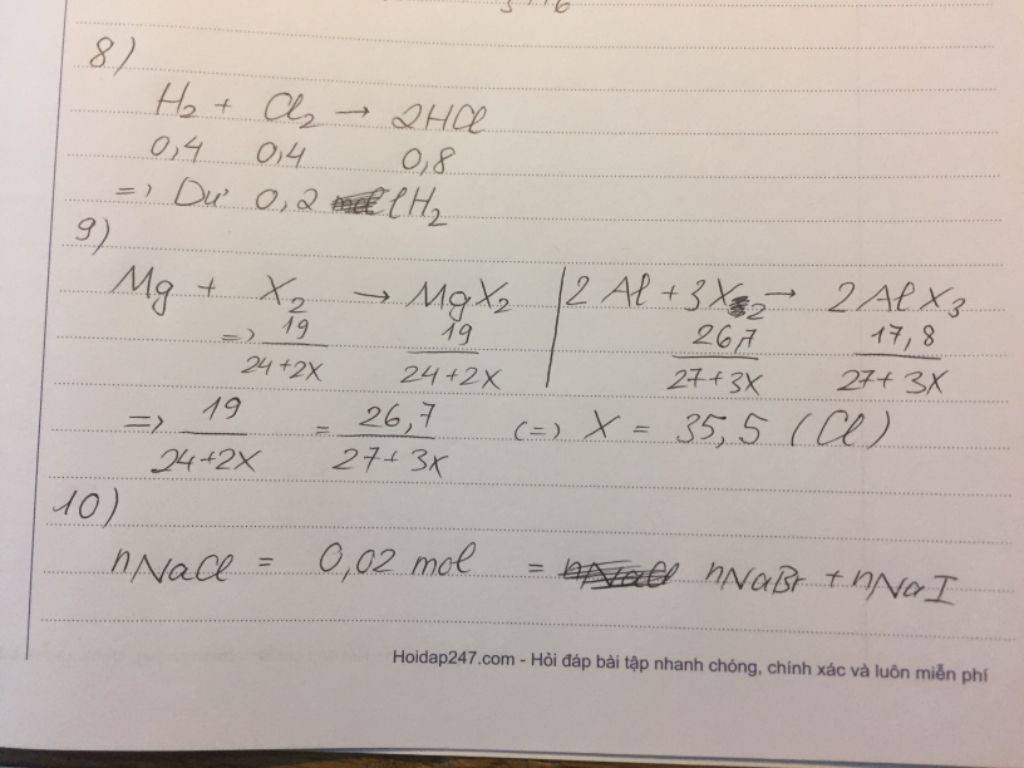 8)
H₂ + Cl₂ → 2HCl
0,4 0,4 0,8
=> Dư 0,2 l H₂
9)
Mg + X₂ → MgX₂ | 2Al + 3X₂ → 2AlX₃
=> 19/(24+2X) 19/(24+2X) 26,7/(27+3X) 17,8/(27+3X)
=> 19/(24+2X) = 26,7/(27+3X) (=) X = 35,5 (Cl)
10)
nNaCl = 0,02 mol = nNaBr + nNaI
Hoidap247.com - Hỏi đáp bài tập nhanh chóng, chính xác và luôn miễn phí